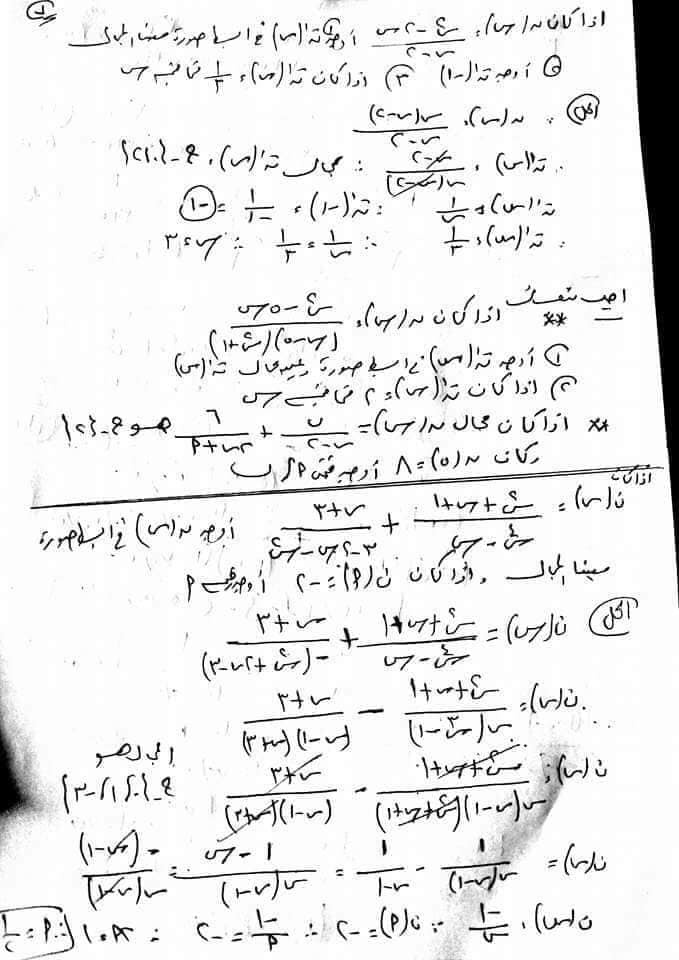 اذا كان ن(س) = (س² - ٢س)/(س - ٢) أوجد ① ن⁻¹(س) في ابسط صورة مبينا المجال
② أوجد ن⁻¹(-١) ③ اذا كان ن⁻¹(س) = ١/٣ فما قيمة س
الحل ∵ ن(س) = س(س - ٢)/(س - ٢)
∴ ن⁻¹(س) = (س - ٢)/(س(س - ٢)) ∴ مجال ن⁻¹(س) = ح - {٠، ٢}
ن⁻¹(س) = ١/س ∴ ن⁻¹(-١) = ١/-١ = -١
∵ ن⁻¹(س) = ١/٣ ∴ ١/س = ١/٣ ∴ س = ٣
اجب بنفسك ** اذا كان ن(س) = (س² - ٥س)/((س - ٥)(س² + ١))
① أوجد ن⁻¹(س) في ابسط صورة وعين مجال ن⁻¹(س)
② اذا كان ن⁻¹(س) = ٢ فما قيمة س
** اذا كان مجال ن(س) = ب/(س - ٢) + ٦/(س٢ + م) هو ح - {٢}
وكان ن(٥) = ٨ أوجد قيمتى م، ب
اذا كان
ن(س) = (س² + س + ١)/(س⁴ - س) + (س + ٣)/(٣ - ٢س - س²) أوجد ن(س) في ابسط صورة
مبينا المجال واذا كان ن(م) = -٢ أوجد قيمة م
الحل ن(س) = (س² + س + ١)/(س⁴ - س) + (س + ٣)/-(س² + ٢س - ٣)
ن(س) = (س² + س + ١)/(س(س³ - ١)) - (س + ٣)/((س - ١)(س + ٣))
المجال هو
ن(س) = (س² + س + ١)/(س(س - ١)(س² + س + ١)) - (س + ٣)/((س - ١)(س + ٣)) ح - {٠، ١، -٣}
ن(س) = ١/(س(س - ١)) - ١/(س - ١) = (١ - س)/(س(س - ١)) = -(س - ١)/(س(س - ١))
ن(س) = -١/س ∵ ن(م) = -٢ ∴ -١/م = -٢ ∴ ∴ م = ١/٢